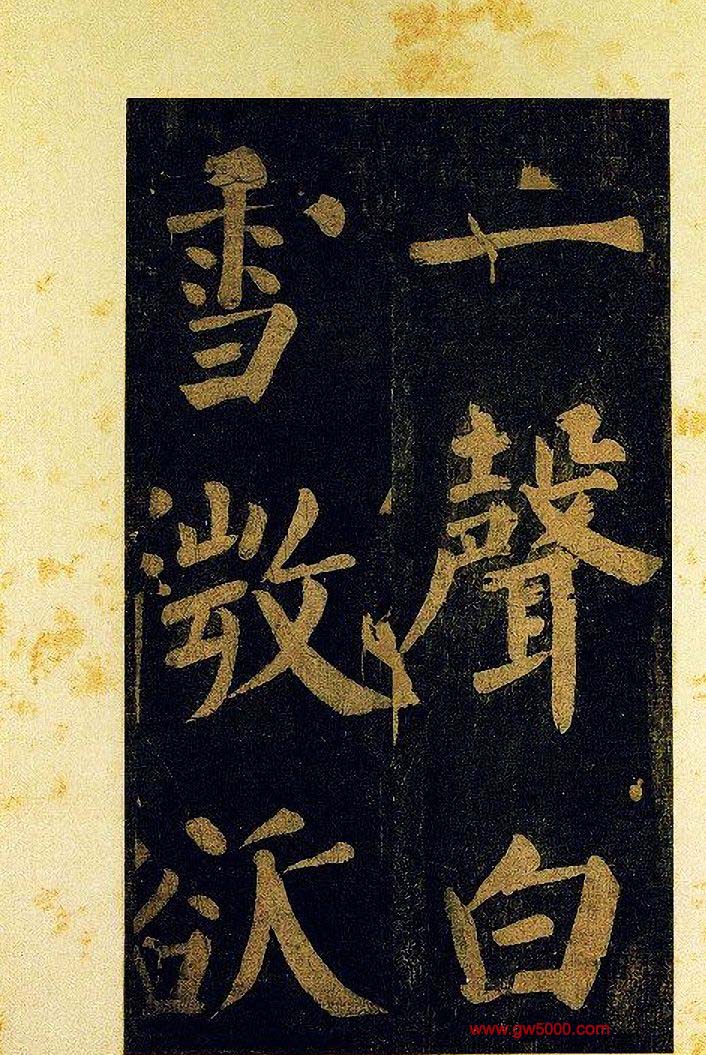 一聲白
雪微欲
www.gw5000.com